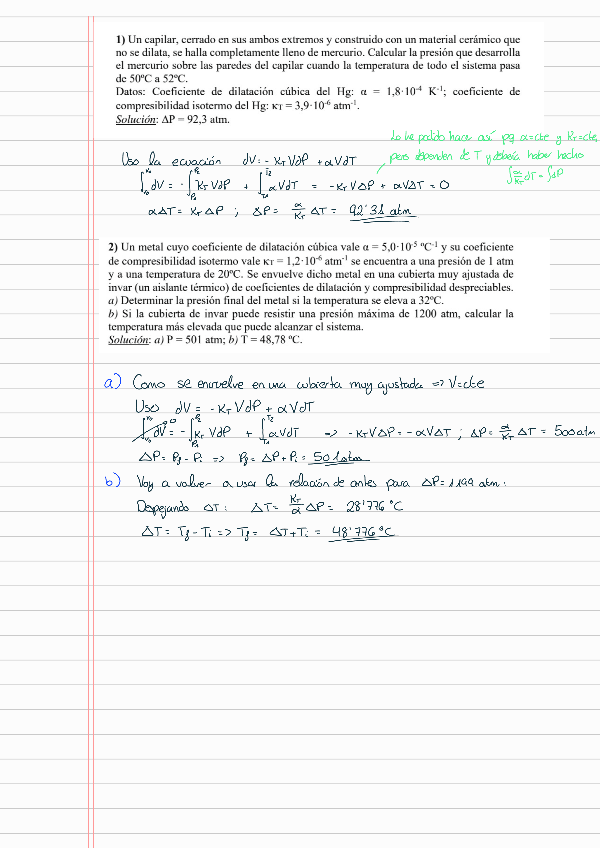 1) Un capilar, cerrado en sus ambos extremos y construido con un material cerámico que
no se dilata, se halla completamente lleno de mercurio. Calcular la presión que desarrolla
el mercurio sobre las paredes del capilar cuando la temperatura de todo el sistema pasa
de 50ºC a 52ºC.
Datos: Coeficiente de dilatación cúbica del Hg: α = 1,8·10⁻⁴ K⁻¹; coeficiente de
compresibilidad isotermo del Hg: κT = 3,9·10⁻⁶ atm⁻¹.
Solución: ΔP = 92,3 atm.
Lo he podido hacer así pq α=cte y KT=cte,
pero dependen de T y debería haber hecho
∫ α/KT dT = ∫dP
Uso la ecuación dV = - KT VdP + αVdT
∫V₀^V₀ dV = - ∫P₁^P₂ KT VdP + ∫T₁^T₂ αVdT = - KT VΔP + αVΔT = 0
αΔT = KT ΔP ; ΔP = α/KT ΔT = 92'31 atm
2) Un metal cuyo coeficiente de dilatación cúbica vale α = 5,0·10⁻⁵ ºC⁻¹ y su coeficiente
de compresibilidad isotermo vale κT = 1,2·10⁻⁶ atm⁻¹ se encuentra a una presión de 1 atm
y a una temperatura de 20ºC. Se envuelve dicho metal en una cubierta muy ajustada de
invar (un aislante térmico) de coeficientes de dilatación y compresibilidad despreciables.
a) Determinar la presión final del metal si la temperatura se eleva a 32ºC.
b) Si la cubierta de invar puede resistir una presión máxima de 1200 atm, calcular la
temperatura más elevada que puede alcanzar el sistema.
Solución: a) P = 501 atm; b) T = 48,78 ºC.
a) Como se envuelve en una cubierta muy ajustada => V=cte
Uso dV = - KT VdP + αVdT
∫V₀^V₀ dV = - ∫P₁^P₂ KT VdP + ∫T₁^T₂ αVdT => - KT VΔP = - αVΔT ; ΔP = α/KT ΔT = 500 atm
ΔP = Pf - Pi => Pf = ΔP + Pi = 501 atm
b) Voy a volver a usar la relación de antes para ΔP=1199 atm:
Despejando ΔT: ΔT = KT/α ΔP = 28'776 °C
ΔT = Tf - Ti => Tf = ΔT + Ti = 48'776 °C